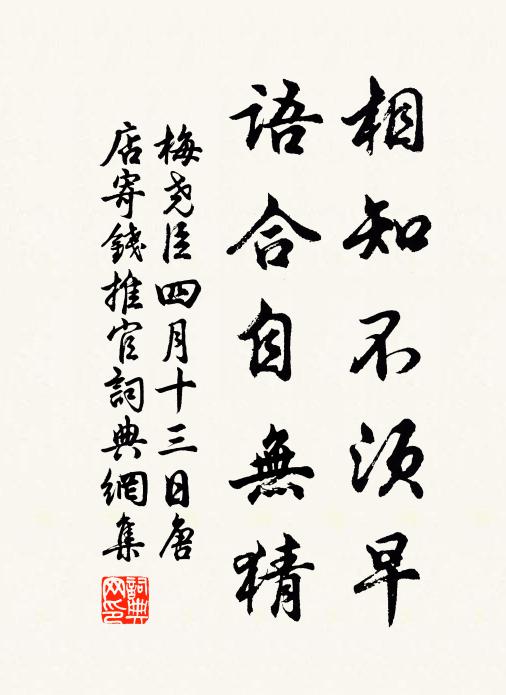 相知不須早
語合自無猜
梅堯臣四月十三日唐
店寄錢推官詞典網集
詞典
网印